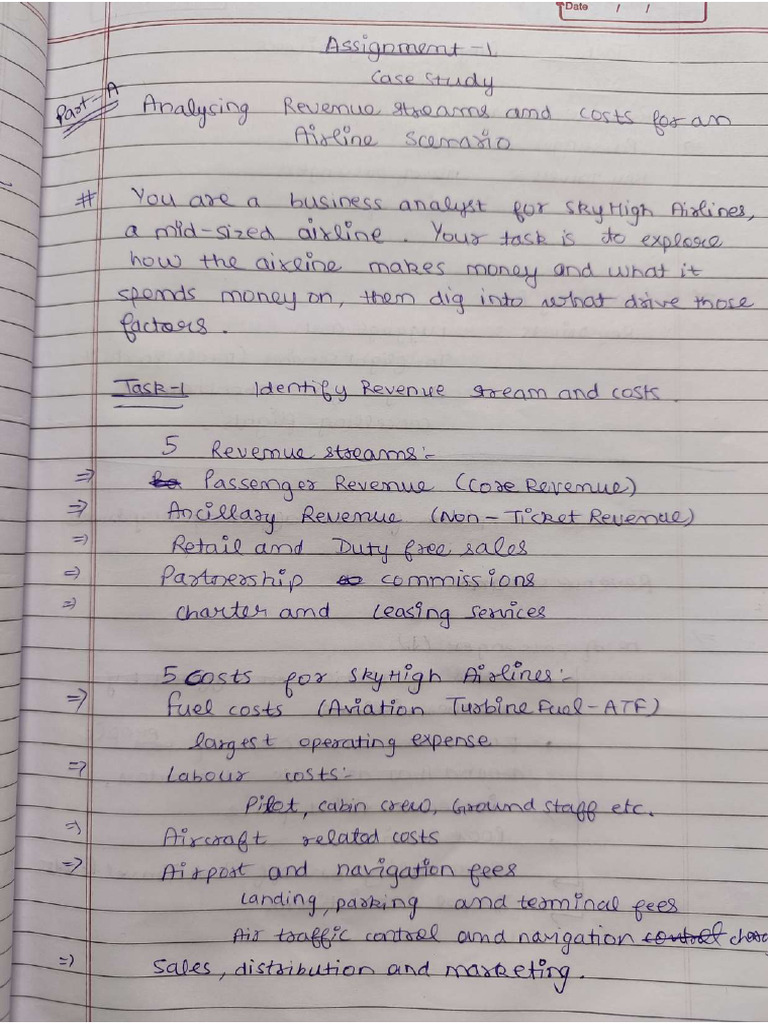 Date / /
Assignment-1
Case Study
Part-A Analysing Revenue streams and costs for an
Airline Scenario
# You are a business analyst for SkyHigh Airlines,
a mid-sized airline. Your task is to explore
how the airline makes money and what it
spends money on, then dig into what drive those
factors.
Task-1 Identify Revenue stream and costs.
5 Revenue streams:-
⇒ Passenger Revenue (Core Revenue)
⇒ Ancillary Revenue (Non-Ticket Revenue)
⇒ Retail and Duty free sales
⇒ Partnership commissions
⇒ Charter and Leasing services
5 Costs for SkyHigh Airlines:-
⇒ Fuel costs (Aviation Turbine Fuel-ATF)
largest operating expense
⇒ Labour costs:-
Pilot, cabin crew, Ground staff etc.
⇒ Aircraft related costs
⇒ Airport and navigation fees
Landing, parking and terminal fees
Air traffic control and navigation control
⇒ Sales, distribution and marketing.